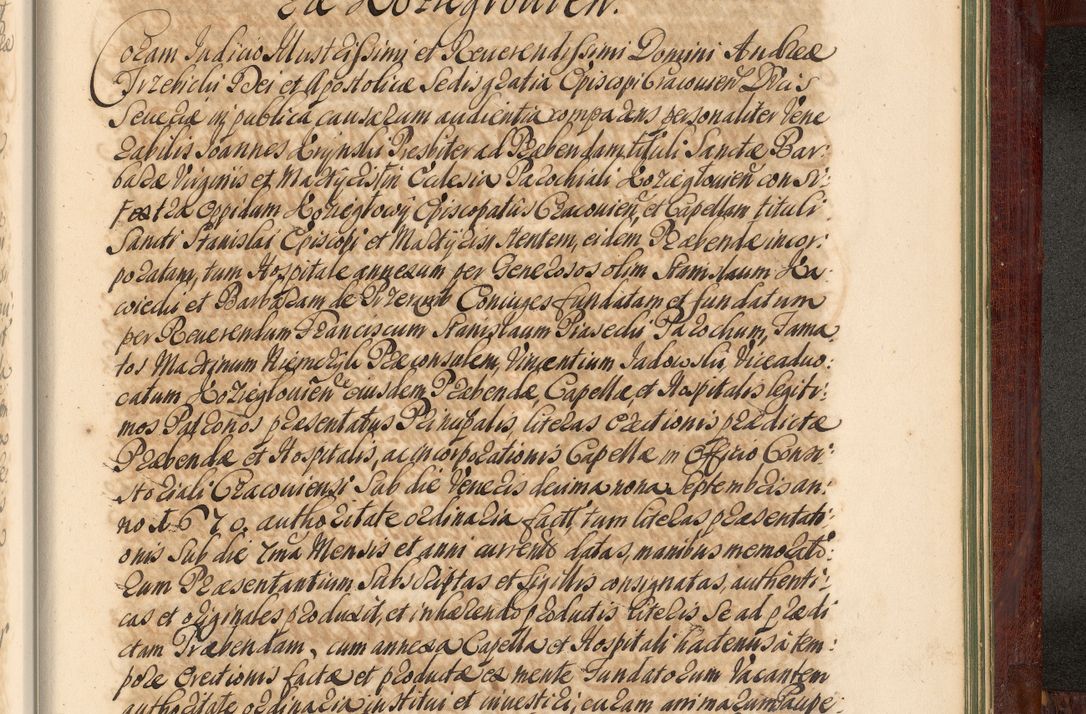 ra Koziegłouien.
Coram Judicio Illustrissimi et Reuerendissimi Domini Andreæ
Trzebicki Dei et Apostolicæ Sedis gratia Episcopi Cracouien Ducis
Seueriæ in publica causarum audientia comparens personaliter Vene
rabilis Joannes Krynski Presbiter ad Præbendam tituli Sanctæ Bar:
baræ Virginis et Martyris in Ecclesia Parochiali Koziegłouien con si:
extra oppidum Koziegłowy Episcopatus Cracouien, et Capellam tituli
Sancti Stanislai Episcopi et Martyris, eidem Præbendæ incor:
poratam, tum Hospitale annexum per Generosos olim Stanislaum
et Barbaram de Coniuges fundatam et fundatum
per Reuerendum Franciscum Stanislaum Piasecki Parochum, Fama
tos Martinum Præconsulem, Vincentium Sadowski, Viceaduo:
catum Koziegłouien Eiusdem Præbendæ, Capellæ, et Hospitalis legiti:
mos Patronos præsentatus Principalis literas erectionis prædictæ
Præbendæ et Hospitalis, ac incorporationis Capellæ in Officio Consi:
storiali Cracouiensi Sub die Veneris decima nona Septembris an:
no 1670. authoritate ordinaria factæ, tum literas præsentati:
onis Sub die 7ma Mensis et anni currentis datas, manibus memorato:
rum Præsentantium Subscriptas et Sigillis consignatas, authenti:
cas et originales produxit, et inhærendo productis literis Se ad prædi
ctam Præbendam, cum annexa Capella et Hospitali hactenus a tem:
pore Erectionis factæ et productæ ex mente Fundatorum Vacantem
authoritate ordinaria institui et inuestiri, curam animarum